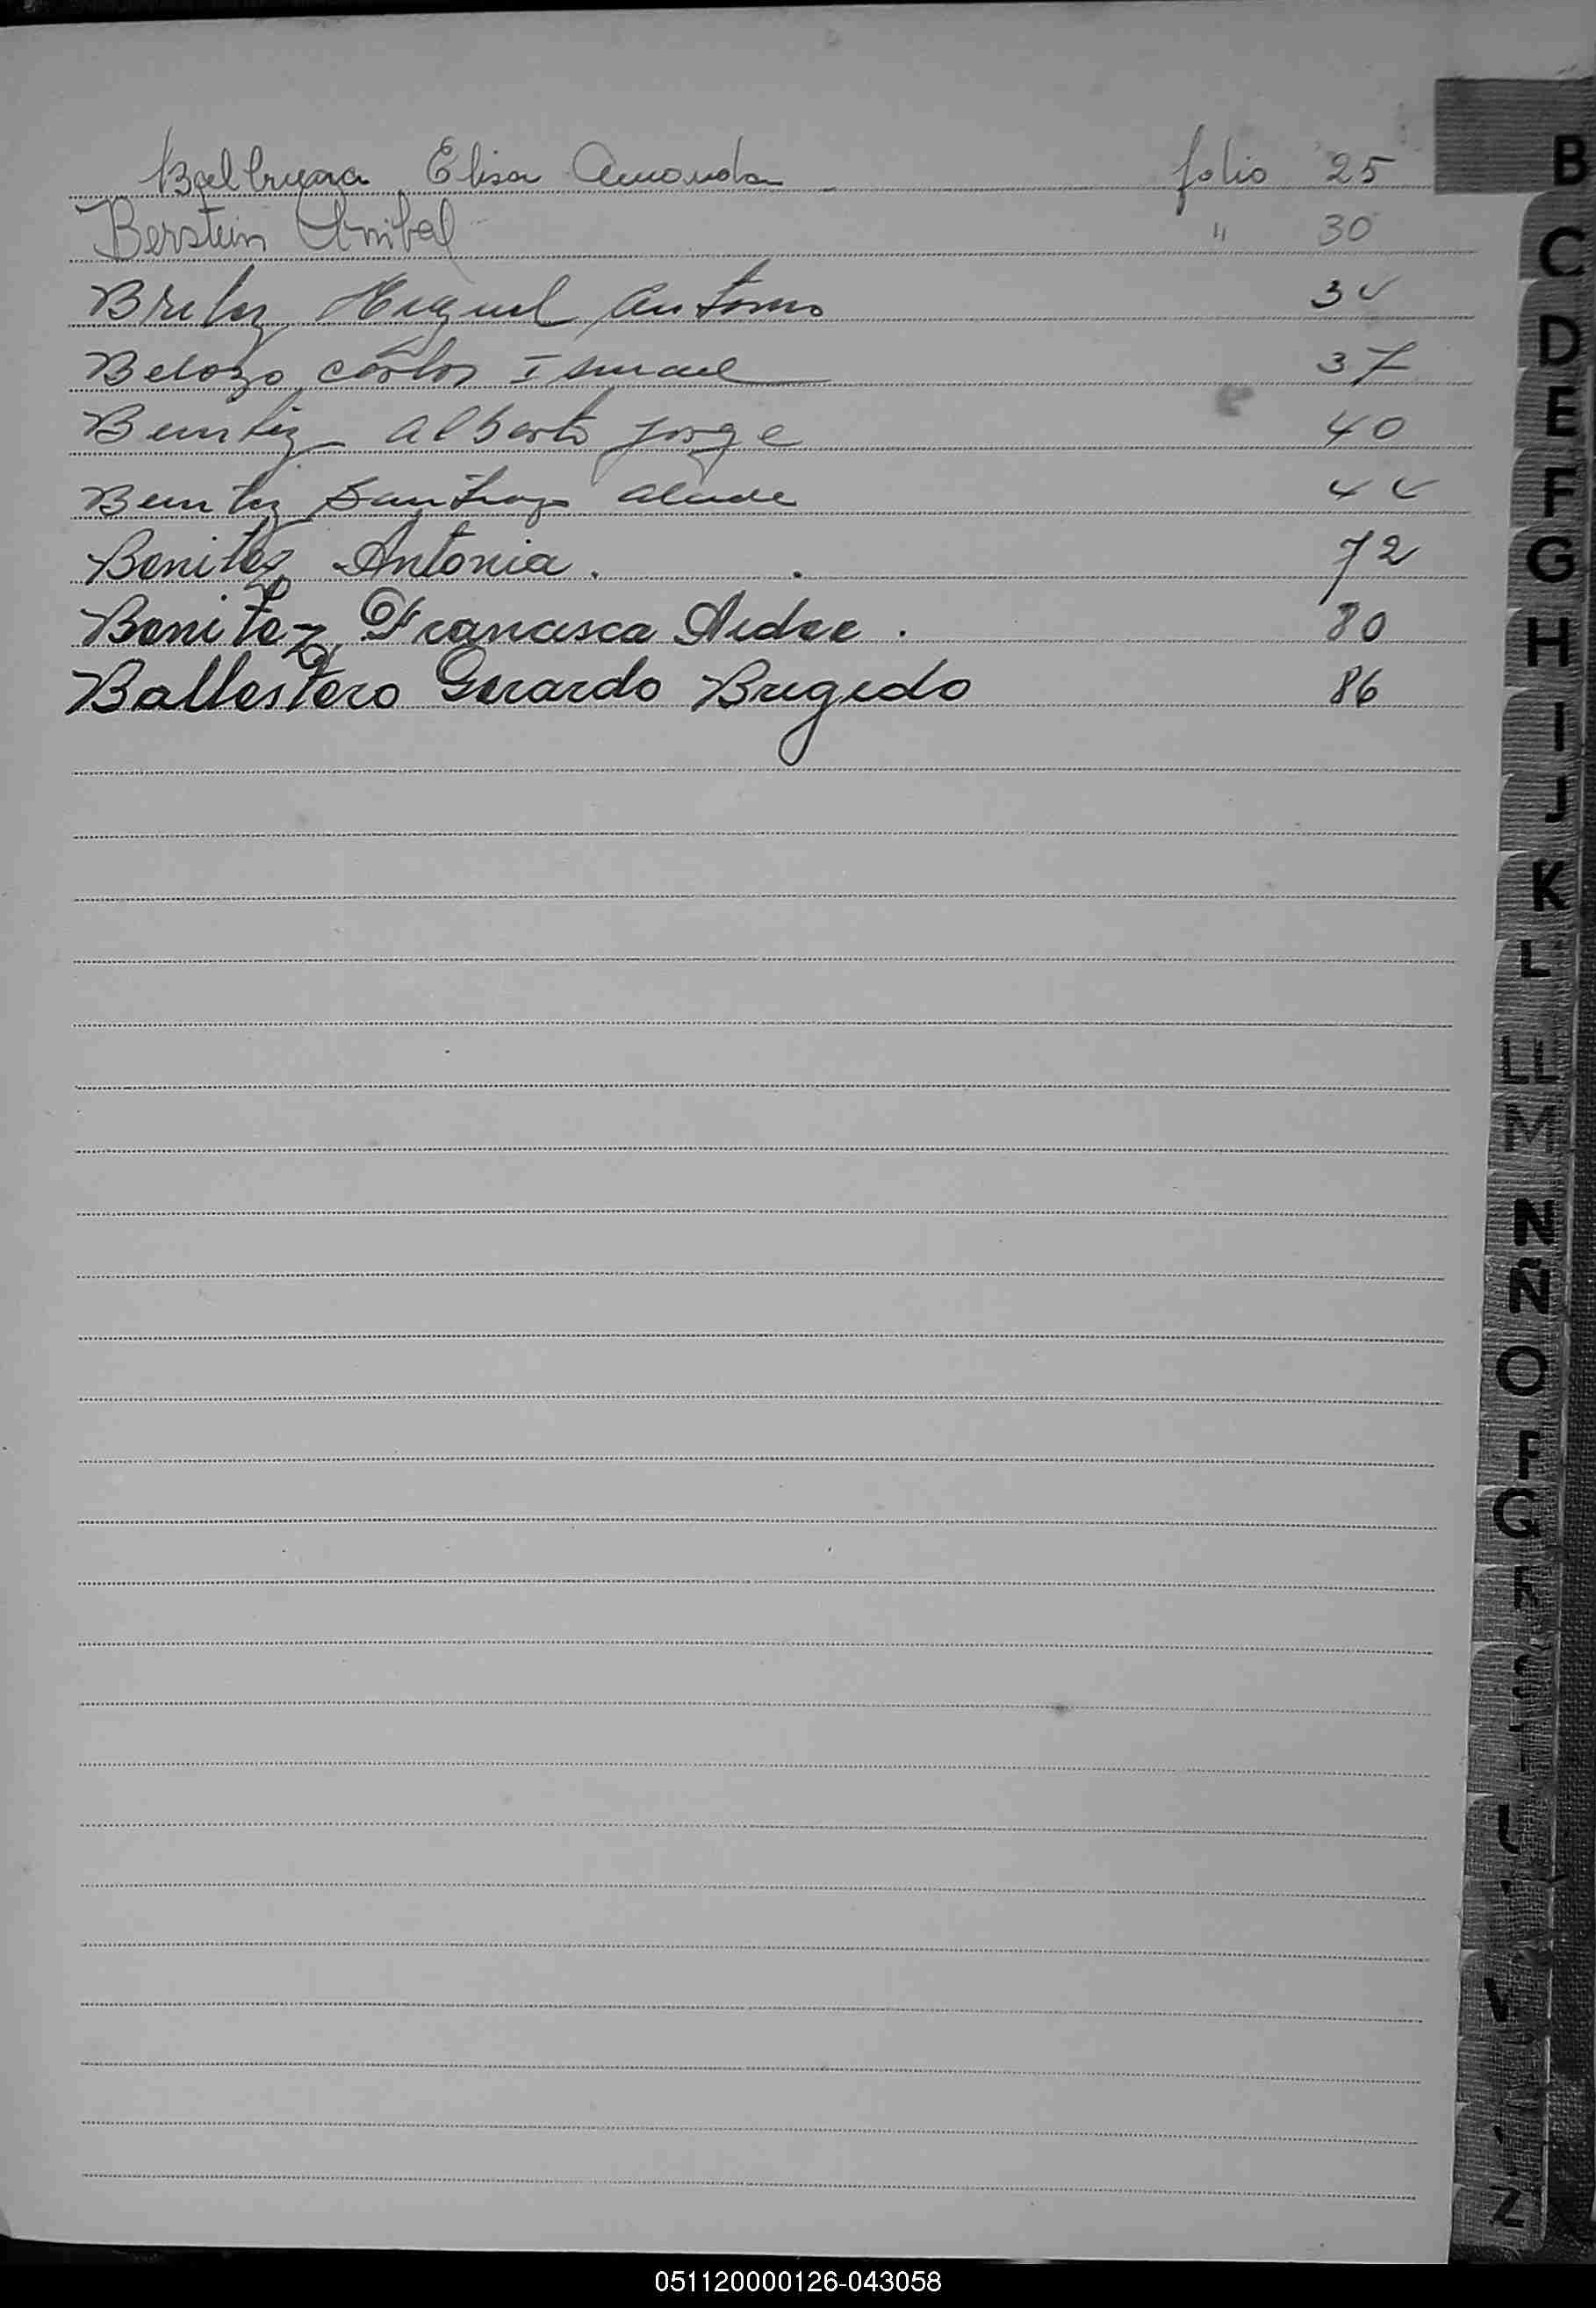 Balbuena Elisa Amanda folio 25
Berstein Anibal " 30
Britez Miguel Antonio 34
Belozo Carlos Ismael 37
Benitez Alberto Jorge 40
Benitez Santiago 44
Benitez Antonia. 72
Benitez Francisca Aidee. 80
Ballestero Gerardo Brigido 86
B
C
D
E
F
G
H
I
J
K
L
M
N
Ñ
O
Q
Z
051120000126-043058